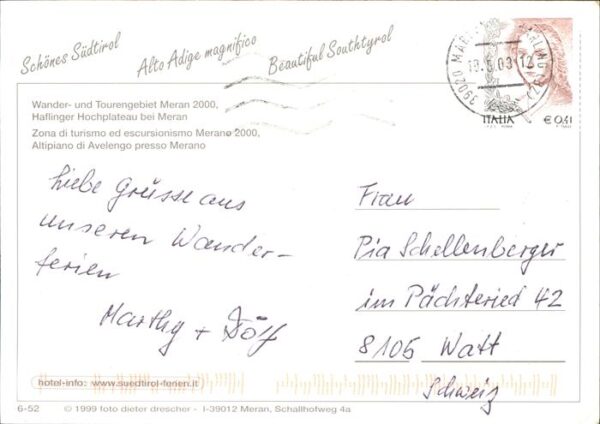 Schönes Südtirol
Alto Adige magnifico
Beautiful Southtyrol
Wander- und Tourengebiet Meran 2000,
Haflinger Hochplateau bei Meran
Zona di turismo ed escursionismo Merano 2000,
Altipiano di Avelengo presso Merano
39020
12
ITALIA
€ 0,41
Liebe Grüsse aus
unseren Wander-
ferien
Marthy + Dölf
Frau
Pia Schellenberger
im Pächteried 42
8105 Watt
Schweiz
hotel-info: www.suedtirol-ferien.it
6-52 © 1999 foto dieter drescher - I-39012 Meran, Schallhofweg 4a